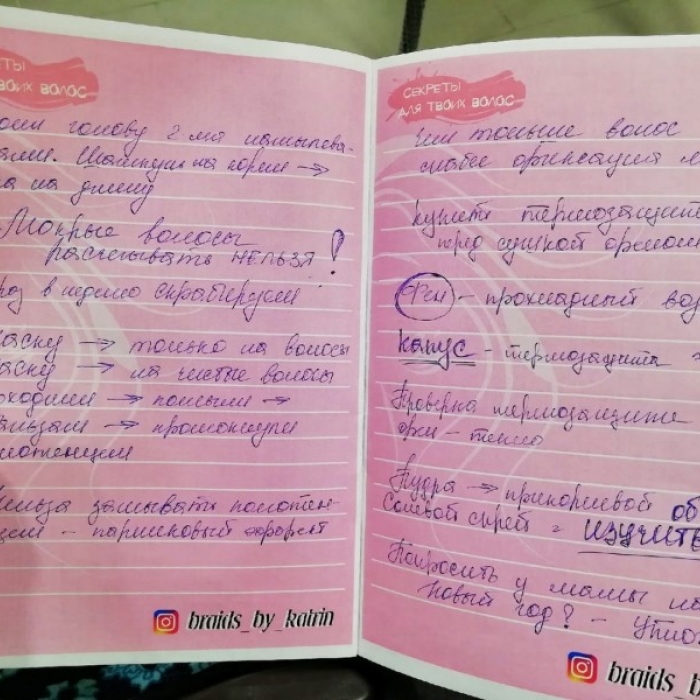 ТЫ
ВОИХ ВОЛОС
голову 2-мя намылива-
ями. Шампунь на корни →
на длину
Мокрые волосы
расчесывать НЕЛЬЗЯ!
раз в неделю скрабируем
маску → только на волосы
маску → на чистые волосы
→ помыли →
бальзам → промокнули
полотенцем
Нельзя заматывать полотен-
цем - парниковый эффект
braids_by_katrin
СЕКРЕТЫ
ДЛЯ ТВОИХ ВОЛОС
Чем тоньше волос
слабее фиксация л
купить термозащит
перед сушкой феном
Фен - прохладный воз
капус - термозащита
Проверка термозащите
фен - тепло
Пудра → прикорневой об
Солевой спрей = ИЗУЧИТЬ
Попросить у мамы на
Новый год? -
braids_